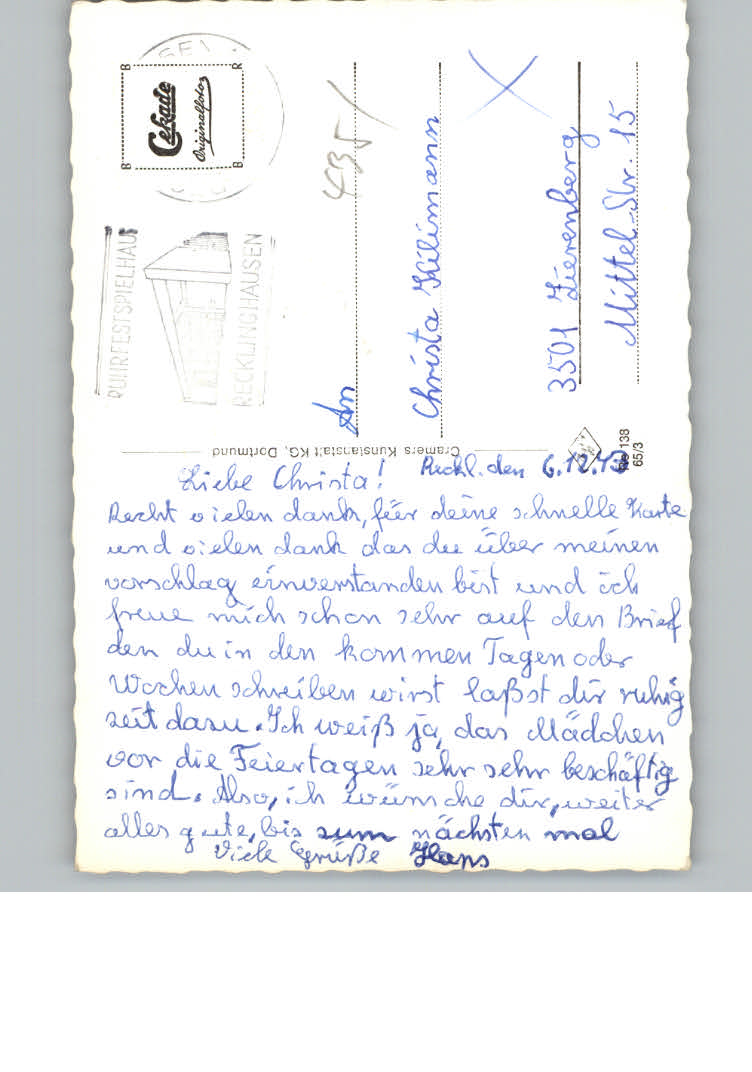 Liebe Christa!
Reckl. den 6.12.73
Recht vielen dank, für deine schnelle Karte
und vielen dank das du über meinen
vorschlag einverstanden bist und ich
freue mich schon sehr auf den Brief
den du in den kommen Tagen oder
Wochen schreiben wirst laßst dir ruhig
zeit dazu. Ich weiß ja, das Mädchen
vor die Feiertagen sehr sehr beschäftig
sind. Also, ich wünsche dir, weiter
alles gute, bis zum nächsten mal
Viele Grüße Hans
An
Christa
3501 Zierenberg
Mittel-Str. 15
435/
Cekade
Originalfoto
B R
B B
RUHRFESTSPIELHAUS
RECKLINGHAUSEN
Cramers Kunstanstalt KG, Dortmund
138
65/3